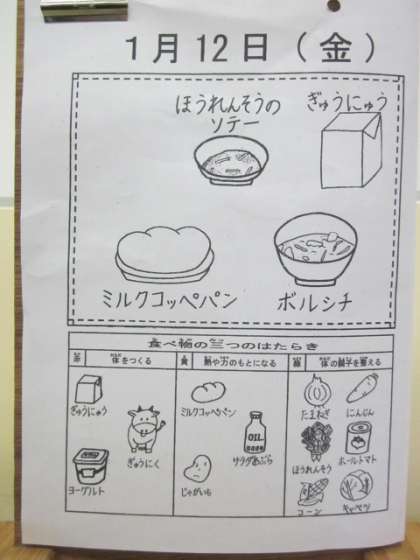 1月12日(金)
ほうれんそうの
ソテー
ぎゅうにゅう
ミルクコッペパン
ボルシチ
食べ物の三つのはたらき
赤 体をつくる
黄 熱や力のもとになる
緑 体の調子を整える
ぎゅうにゅう
ぎゅうにく
ヨーグルト
ミルクコッペパン
OIL
サラダあぶら
じゃがいも
たまねぎ
にんじん
ほうれんそう
ホールトマト
コーン
キャベツ